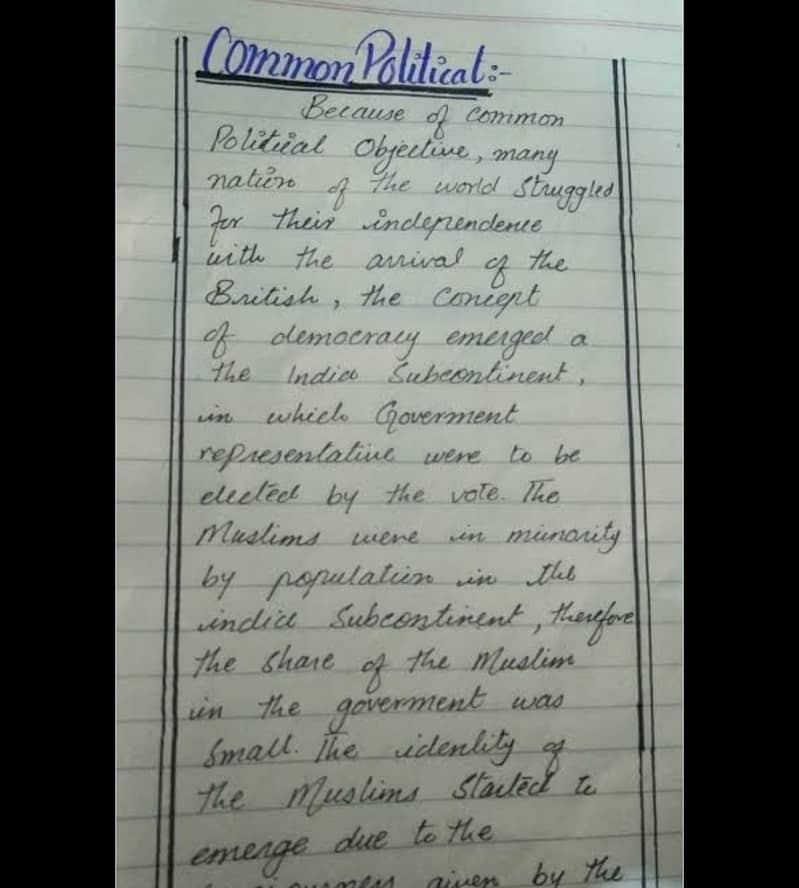 Common Political:-
Because of common
Political Objective, many
nation of the world struggled
for their independence
with the arrival of the
British, the Concept
of democracy emerged a
the India Subcontinent,
in which Goverment
representative were to be
elected by the vote. The
Muslims were in minority
by population in the
india Subcontinent, therefore
the share of the Muslim
in the goverment was
small. The identity of
the Muslims Started to
emerge due to the
given by the